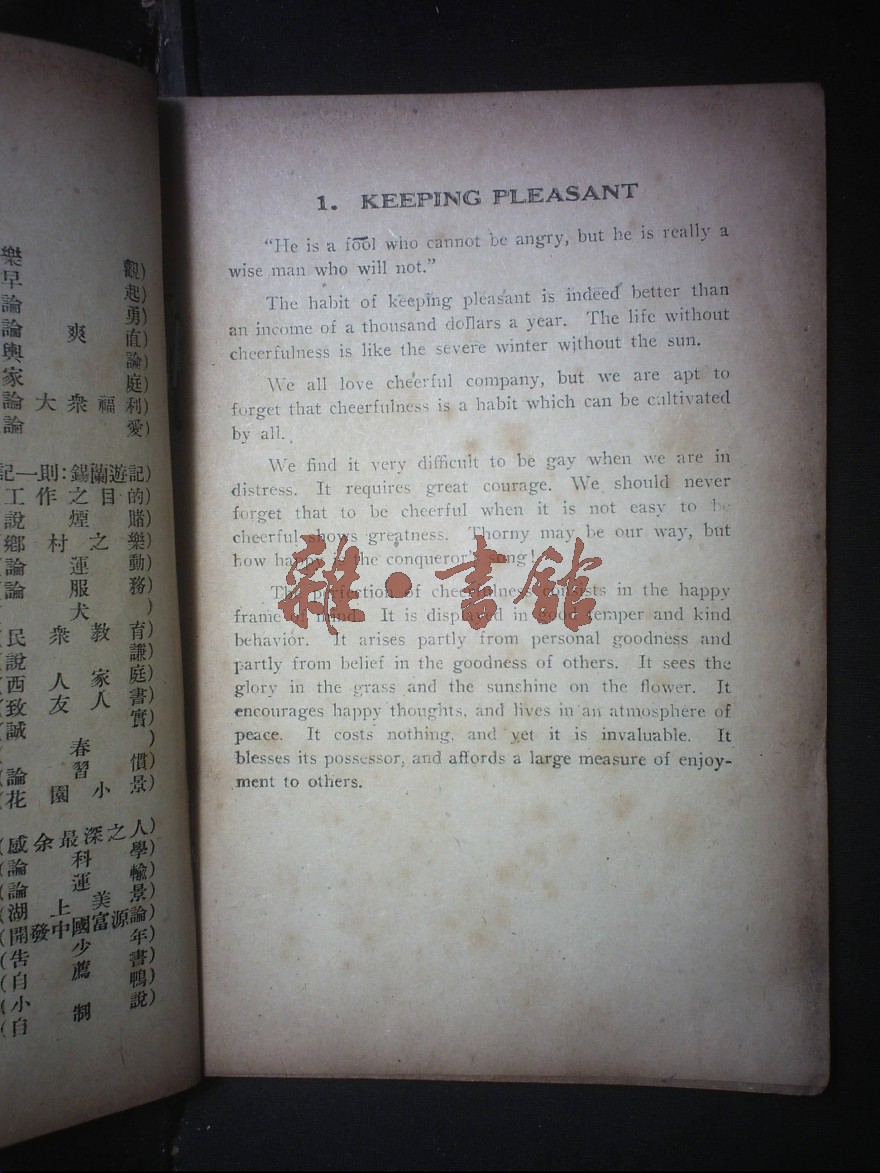 樂觀)
早起)
論勇)
論爽直)
輿論)
家庭)
論大衆福利)
論愛)
記一則:錫蘭遊記)
(工作之目的)
(說煙賭)
(鄉村之樂)
(論運動)
(論服務)
(犬)
(民衆教育)
(說謙)
(西人家庭)
(致友人書)
(誠實)
(春)
(論習慣)
(花園小景)
(感余最深之人)
(論科學)
(論運輸)
(湖上美景)
(開發中國富源論)
(告少年)
(自薦書)
(小鴨)
(自制說)
1. KEEPING PLEASANT
"He is a fool who cannot be angry, but he is really a
wise man who will not."
The habit of keeping pleasant is indeed better than
an income of a thousand dollars a year. The life without
cheerfulness is like the severe winter without the sun.
We all love cheerful company, but we are apt to
forget that cheerfulness is a habit which can be cultivated
by all.
We find it very difficult to be gay when we are in
distress. It requires great courage. We should never
forget that to be cheerful when it is not easy to be
cheerful shows greatness. Thorny may be our way, but
how happy is the conqueror's song!
The perfection of cheerfulness consists in the happy
frame of mind. It is displayed in good temper and kind
behavior. It arises partly from personal goodness and
partly from belief in the goodness of others. It sees the
glory in the grass and the sunshine on the flower. It
encourages happy thoughts, and lives in an atmosphere of
peace. It costs nothing, and yet it is invaluable. It
blesses its possessor, and affords a large measure of enjoy-
ment to others.
雜·書館